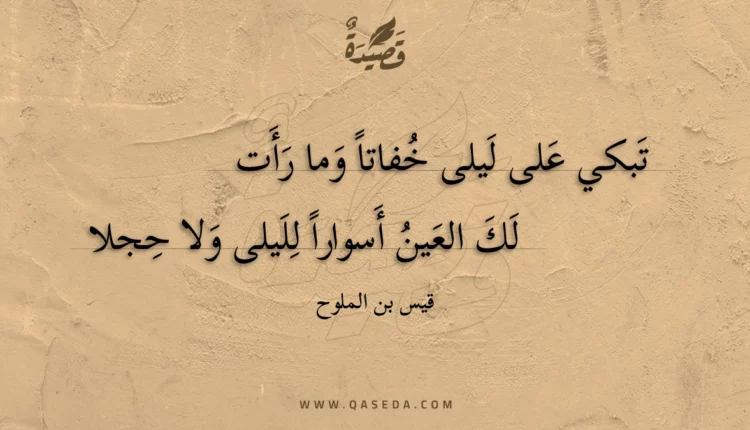 قَصِيْدَةٌ
تَبكي عَلى لَيلى خُفاتاً وَما رَأَت
لَكَ العَينُ أَسواراً لِلَيلى وَلا حِجلا
قيس بن الملوح
WWW.QASEDA.COM